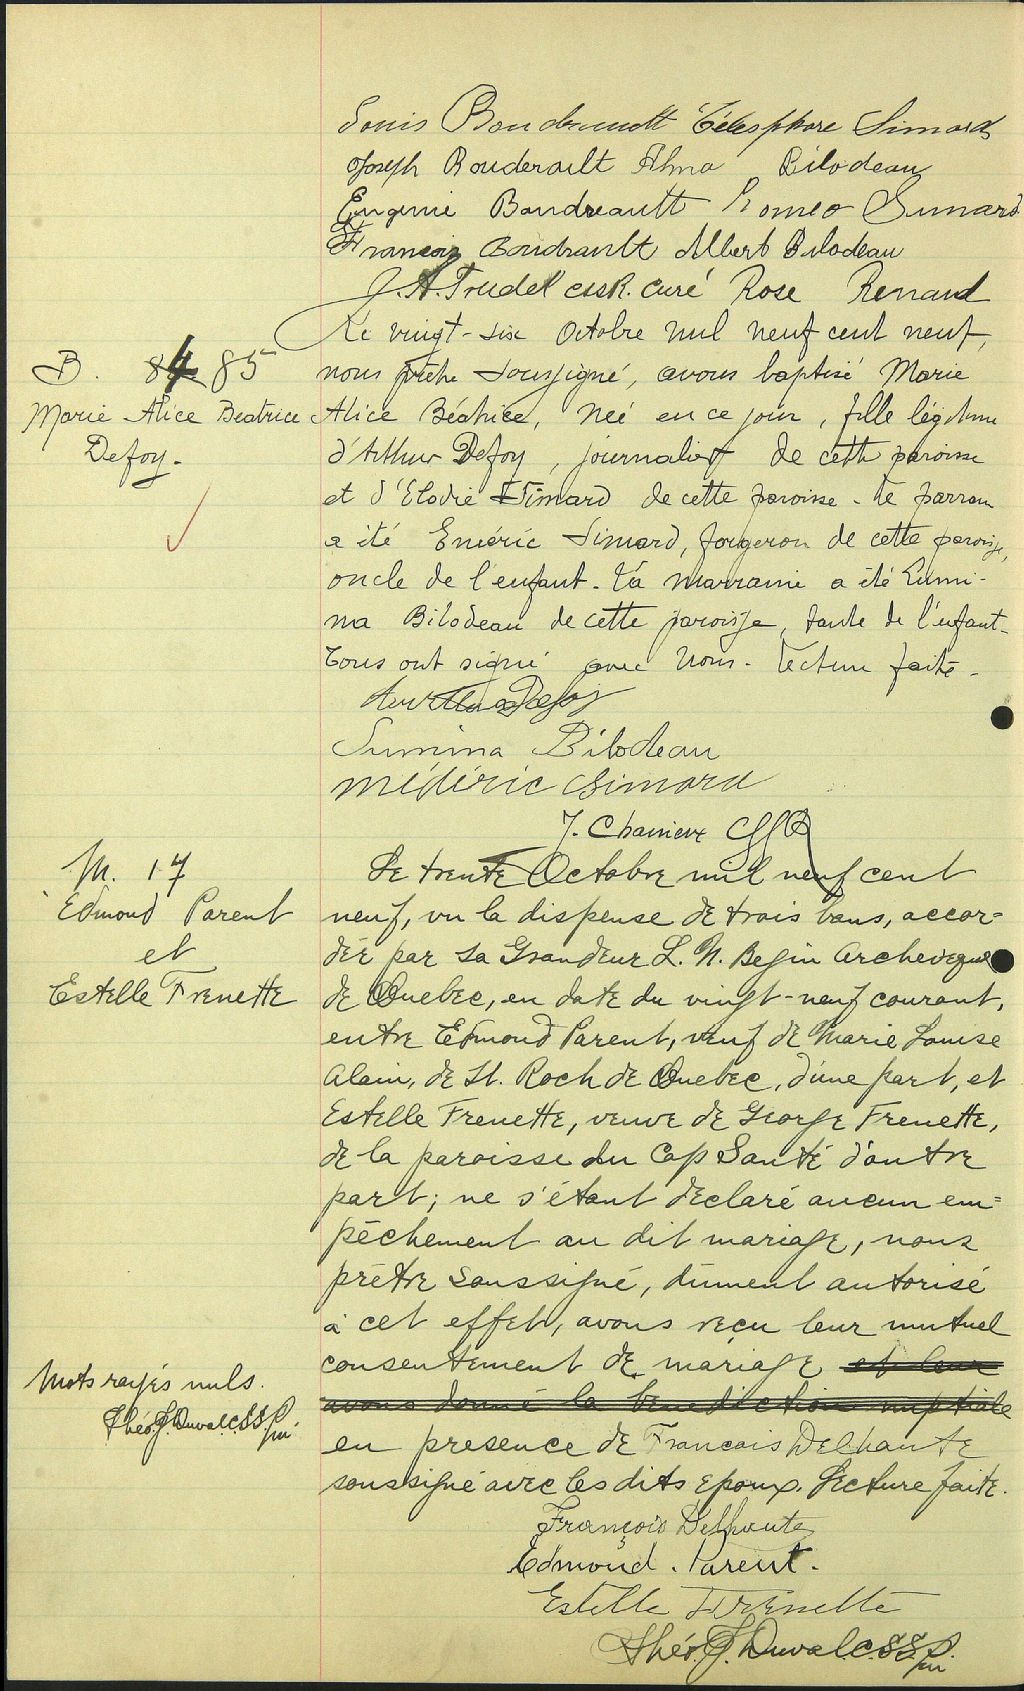 Louis Boudreault Télesphore Simard
Joseph Bouderault Alma Bilodeau
Eugenie Boudreault Romeo Simard
François Boudrault Albert Bilodeau
J. A. Trudel cssR. curé Rose Renaud
Le vingt-six Octobre mil neuf cent neuf,
B. 84 85
nous prêtre soussigné, avons baptisé Marie
Marie Alice Beatrice
Alice Béatrice, née en ce jour, fille légitime
Defoy.
d'Arthur Defoy, journalier de cette paroisse
et d'Elodie Simard de cette paroisse. Le parrain
a été Eméric Simard, forgeron de cette paroisse,
oncle de l'enfant. La marraine a été Lumi-
na Bilodeau de cette paroisse, tante de l'enfant.
Tous ont signé avec Nous. Lecture faite.
Arthur Defoy
Lumina Bilodeau
Médéric Simard
J. CSSR
M. 17
Le trente Octobre mil neuf cent
Edmond Parent
neuf, vu la dispense de trois bans, accor=
et
dée par Sa Grandeur L. N. Begin Archeveque
Estelle Frenette
de Quebec, en date du vingt-neuf courant,
entre Edmond Parent, veuf de Marie Louise
Alain, de St. Roch de Quebec, d'une part, et
Estelle Frenette, veuve de George Frenette,
de la paroisse du Cap Santé d'autre
part; ne s'étant déclaré aucun em=
pêchement au dit mariage, nous
prêtre soussigné, dûment autorisé
à cet effet, avons reçu leur mutuel
consentement de mariage et leur
Mots rayés nuls.
avons donné la benediction nuptiale
Théo. J. Duval C.SS.R.
en presence de Francois Delhaute
soussigné avec les dits epoux. Lecture faite.
François Delhaute
Edmond. Parent.
Estelle Frenette
Théo. J. Duval. C.SS.R.